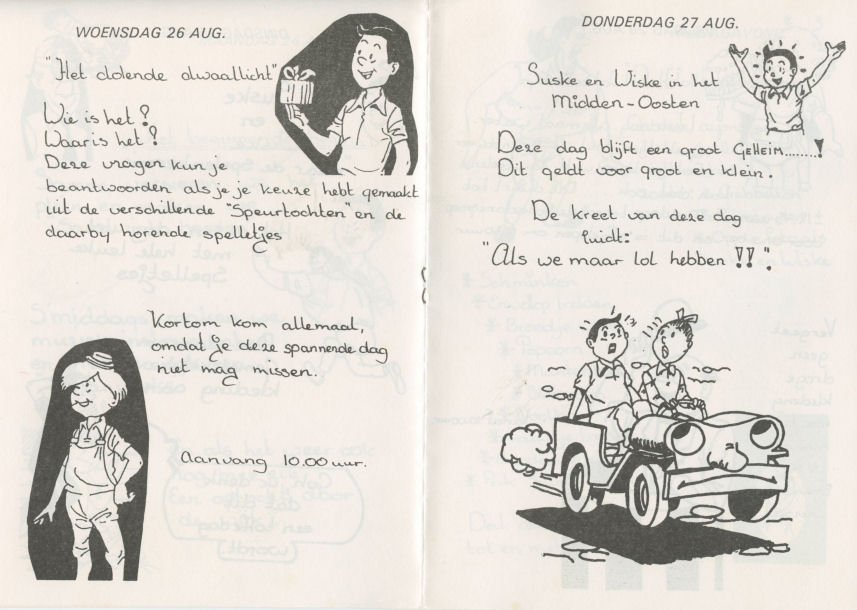 WOENSDAG 26 AUG.
"Het dolende dwaallicht"
Wie is het?
Waar is het?
Deze vragen kun je
beantwoorden als je je keuze hebt gemaakt
uit de verschillende "Speurtochten" en de
daarby horende spelletjes
Kortom kom allemaal,
omdat je deze spannende dag
niet mag missen.
Aanvang 10.00 uur.
DONDERDAG 27 AUG.
Suske en Wiske in het
Midden-Oosten
Deze dag blijft een groot GEHEIM.......!
Dit geldt voor groot en klein.
De kreet van deze dag
luidt:
"Als we maar lol hebben !!".